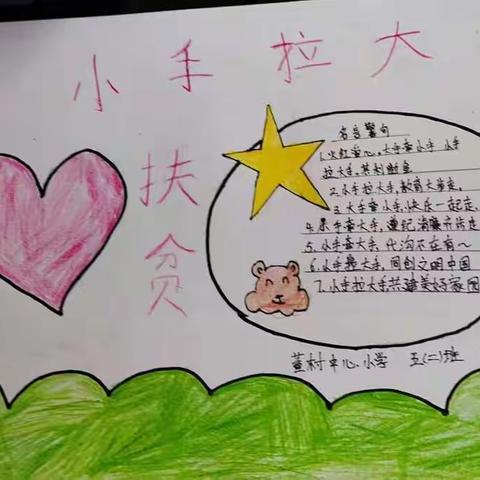 小手拉大
扶贫
名言警句
1.火红爱心,大手牵小手 小手
拉大手,共创
2.小手拉大手,教育大步走,
3.大手牵小手,快乐一起走,
手牵大手,遵纪 廉齐步走
5.小手牵大手,代沟不在有~
6.小手拉大手,同创文明中国
7.小手拉大手共建美好家园
董村中心小学 五(二)班